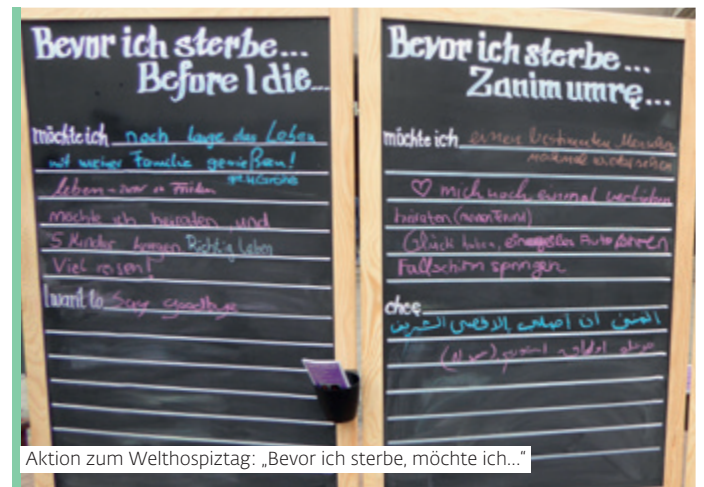 Bevor ich sterbe...
Before I die...
möchte ich noch lange das Leben
mit meiner Familie genießen!
Leben - in Frieden
möchte ich heiraten und
5 Kinder kriegen Richtig leben
Viel reisen!
I want to Say goodbye
Bevor ich sterbe...
Zanim umrę...
möchte ich einen bestimmten Menschen
nochmal wiedersehen
♡ mich noch einmal verlieben
heiraten (meinen Freund)
Glück haben, Auto fahren
Fallschirm springen
chcę
اتمنى ان اصلي بالاقصى الشريف
Aktion zum Welthospiztag: „Bevor ich sterbe, möchte ich...“